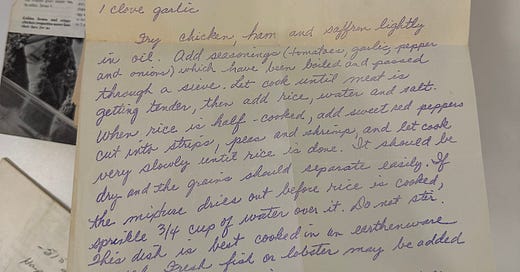 1 clove garlic
Fry chicken ham and saffron lightly
in oil. Add seasonings (tomatoes, garlic, pepper
and onions) which have been boiled and passed
through a sieve. Let cook until meat is
getting tender, then add rice, water and salt.
When rice is half-cooked, add sweet red peppers
cut into strips, peas and shrimp, and let cook
very slowly until rice is done. It should be
dry and the grains should separate easily. If
the mixture dries out before rice is cooked,
sprinkle 3/4 cup of water over it. Do not stir.
This dish is best cooked in an earthenware
Fresh fish or lobster may be added